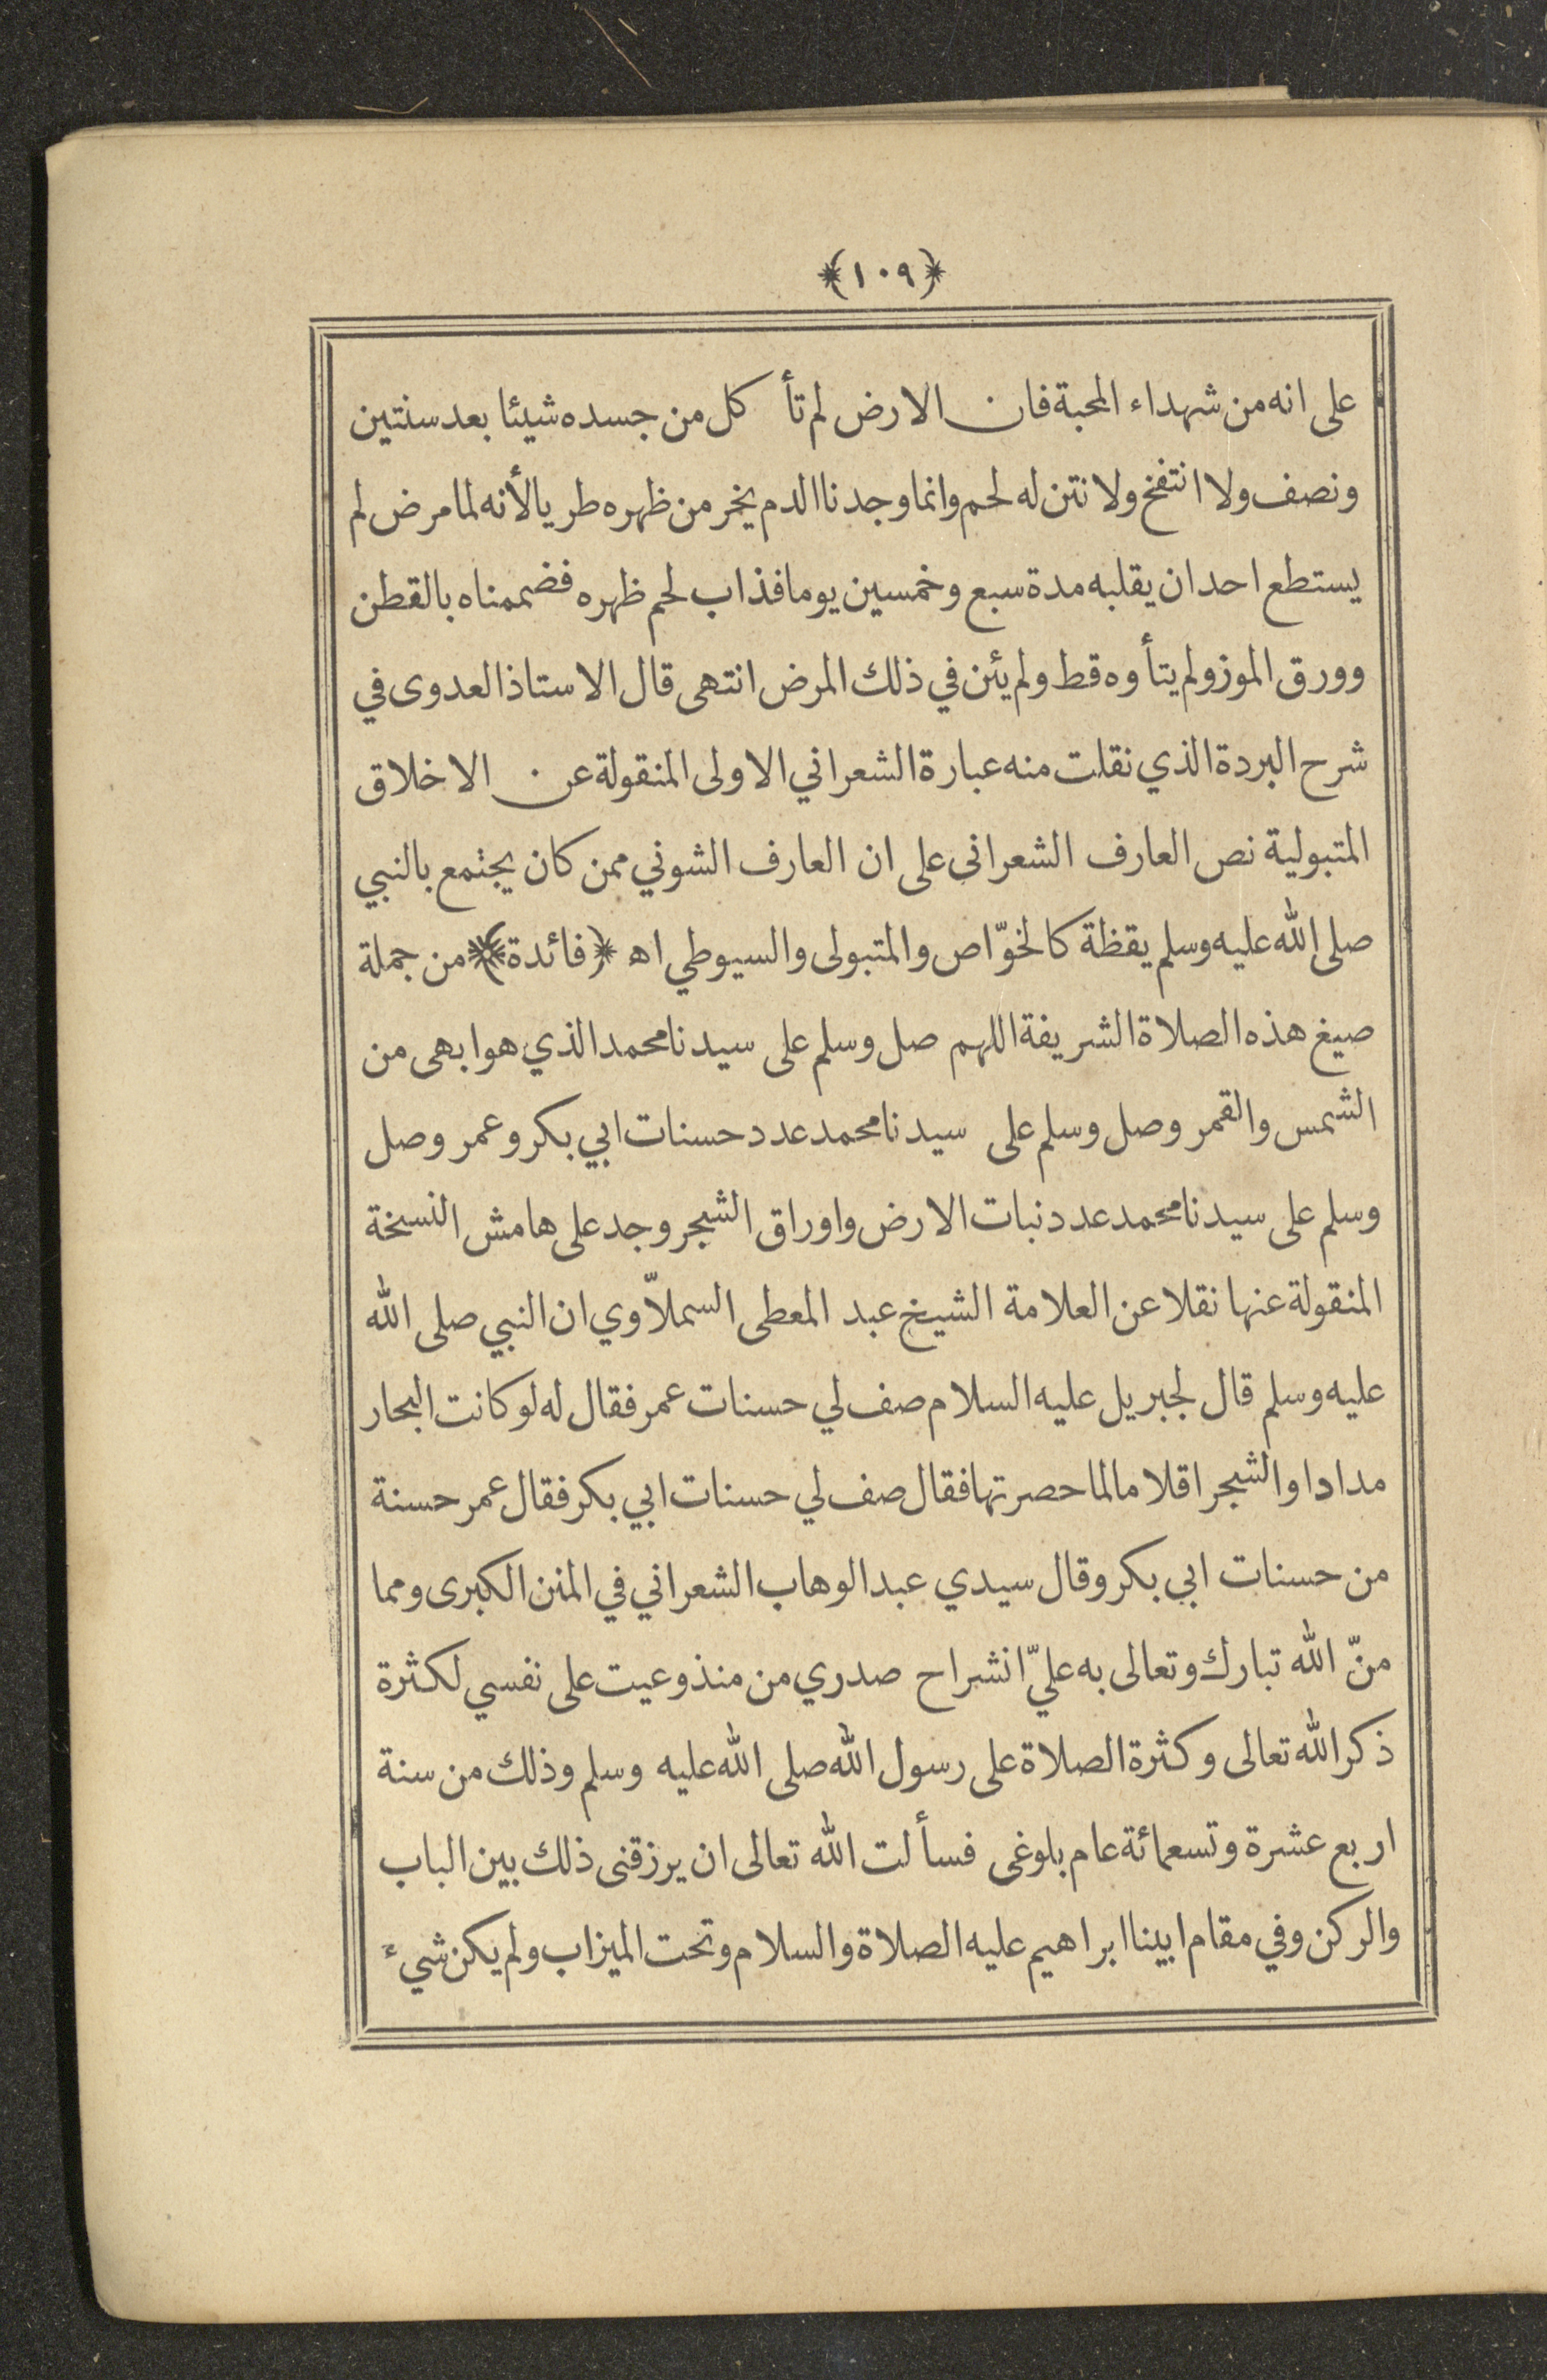 ﴿١٠٩﴾
على انه من شهداء المحبة فان الارض لم تأكل من جسده شيئا بعد سنتين
ونصف ولا انتفخ ولا نتن له لحم وانما وجدنا الدم يخر من ظهره طريا لأنه لما مرض لم
يستطع احد ان يقلبه مدة سبع وخمسين يوما فذاب لحم ظهره فضممناه بالقطن
وورق الموز ولم يتأوه قط ولم يئن في ذلك المرض انتهى قال الاستاذ العدوى في
شرح البردة الذي نقلت منه عبارة الشعراني الاولى المنقولة عن الاخلاق
المتبولية نص العارف الشعرانى على ان العارف الشوني ممن كان يجتمع بالنبي
صلى الله عليه وسلم يقظة كالخوّاص والمتبولى والسيوطي اه ﴿فائدة﴾ من جملة
صيغ هذه الصلاة الشريفة اللهم صل وسلم على سيدنا محمد الذي هو ابهى من
الشمس والقمر وصل وسلم على سيدنا محمد عدد حسنات ابي بكر وعمر وصل
وسلم على سيدنا محمد عدد نبات الارض واوراق الشجر وجد على هامش النسخة
المنقولة عنها نقلا عن العلامة الشيخ عبد المعطى السملاّوي ان النبي صلى الله
عليه وسلم قال لجبريل عليه السلام صف لي حسنات عمر فقال له لو كانت البحار
مدادا والشجر اقلاما لما حصرتها فقال صف لي حسنات ابي بكر فقال عمر حسنة
من حسنات ابي بكر وقال سيدي عبد الوهاب الشعراني في المنن الكبرى ومما
منّ الله تبارك وتعالى به عليّ انشراح صدري من منذ وعيت على نفسي لكثرة
ذكر الله تعالى وكثرة الصلاة على رسول الله صلى الله عليه وسلم وذلك من سنة
اربع عشرة وتسعمائة عام بلوغى فسألت الله تعالى ان يرزقنى ذلك بين الباب
والركن وفي مقام ابينا ابراهيم عليه الصلاة والسلام وتحت الميزاب ولم يكن شيء